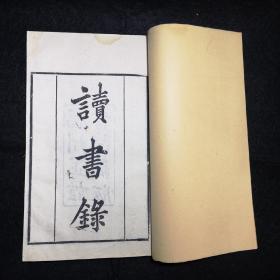 讀書錄